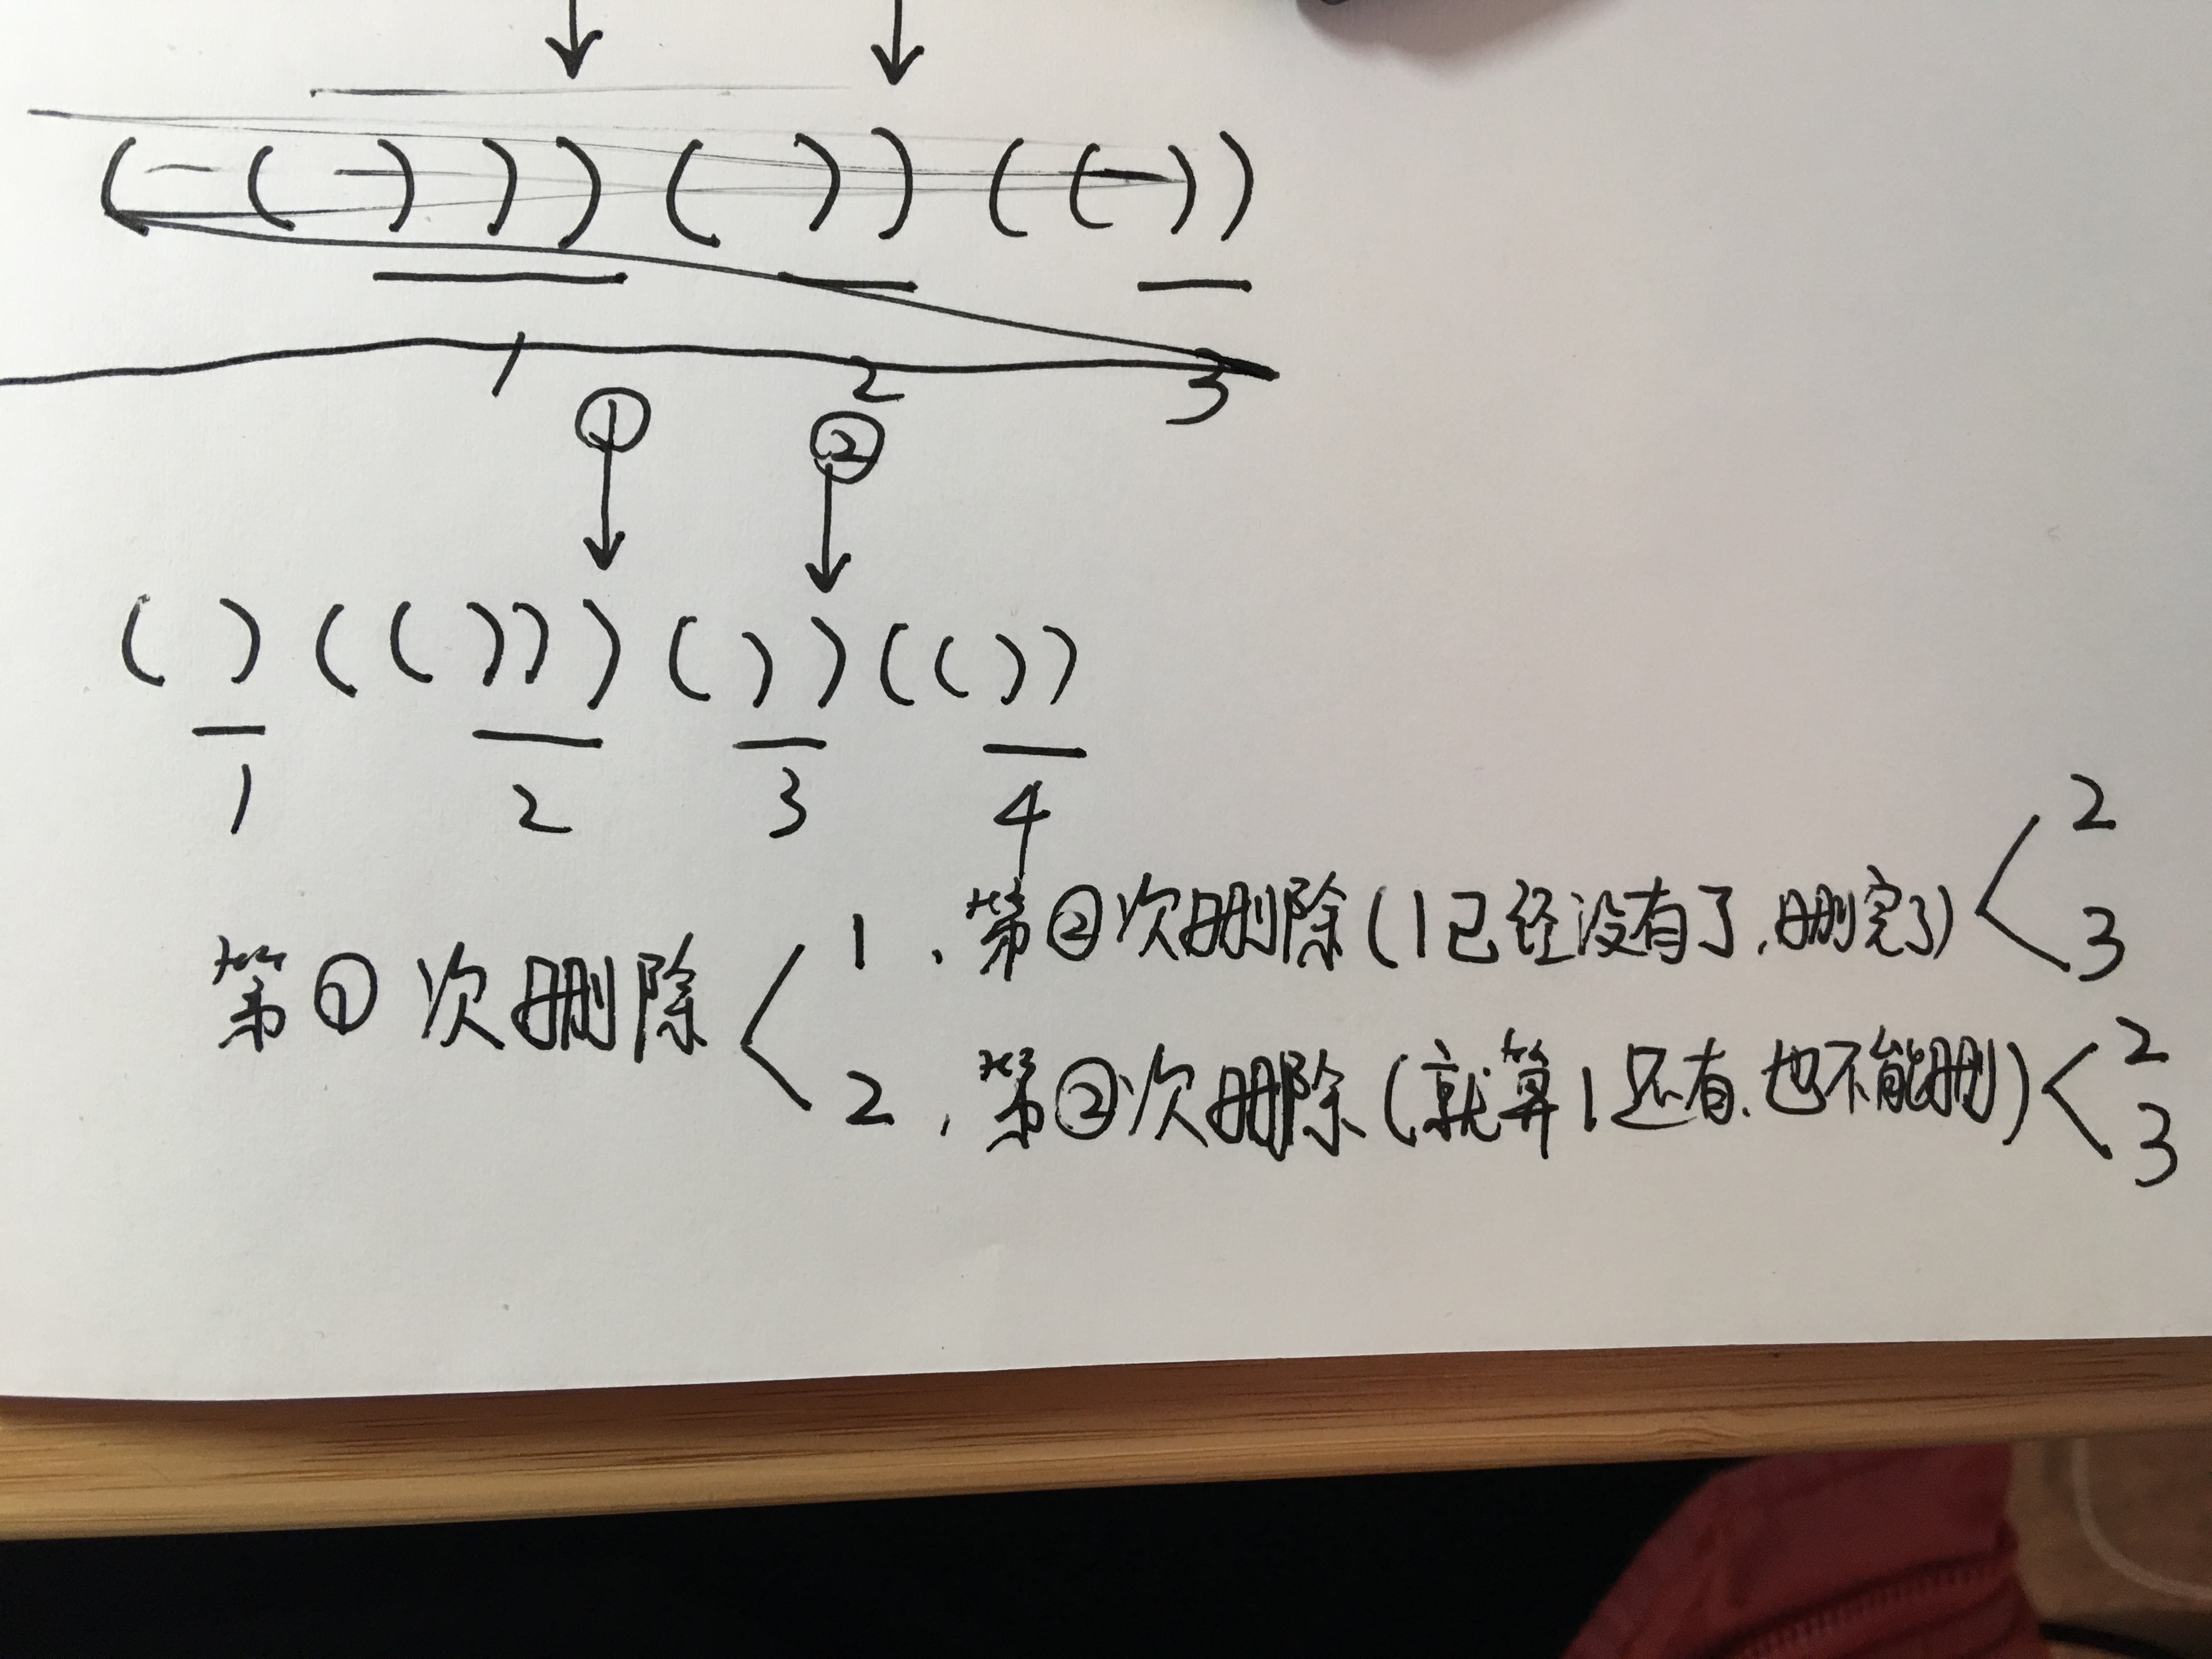 (()))())(())
1 2 3
① ②
()(()))())(())
1 2 3 4
第①次删除
1、第②次删除(1已经没有了、删完了)
2
3
2、第②次删除(就算1还有、也不能删)
2
3